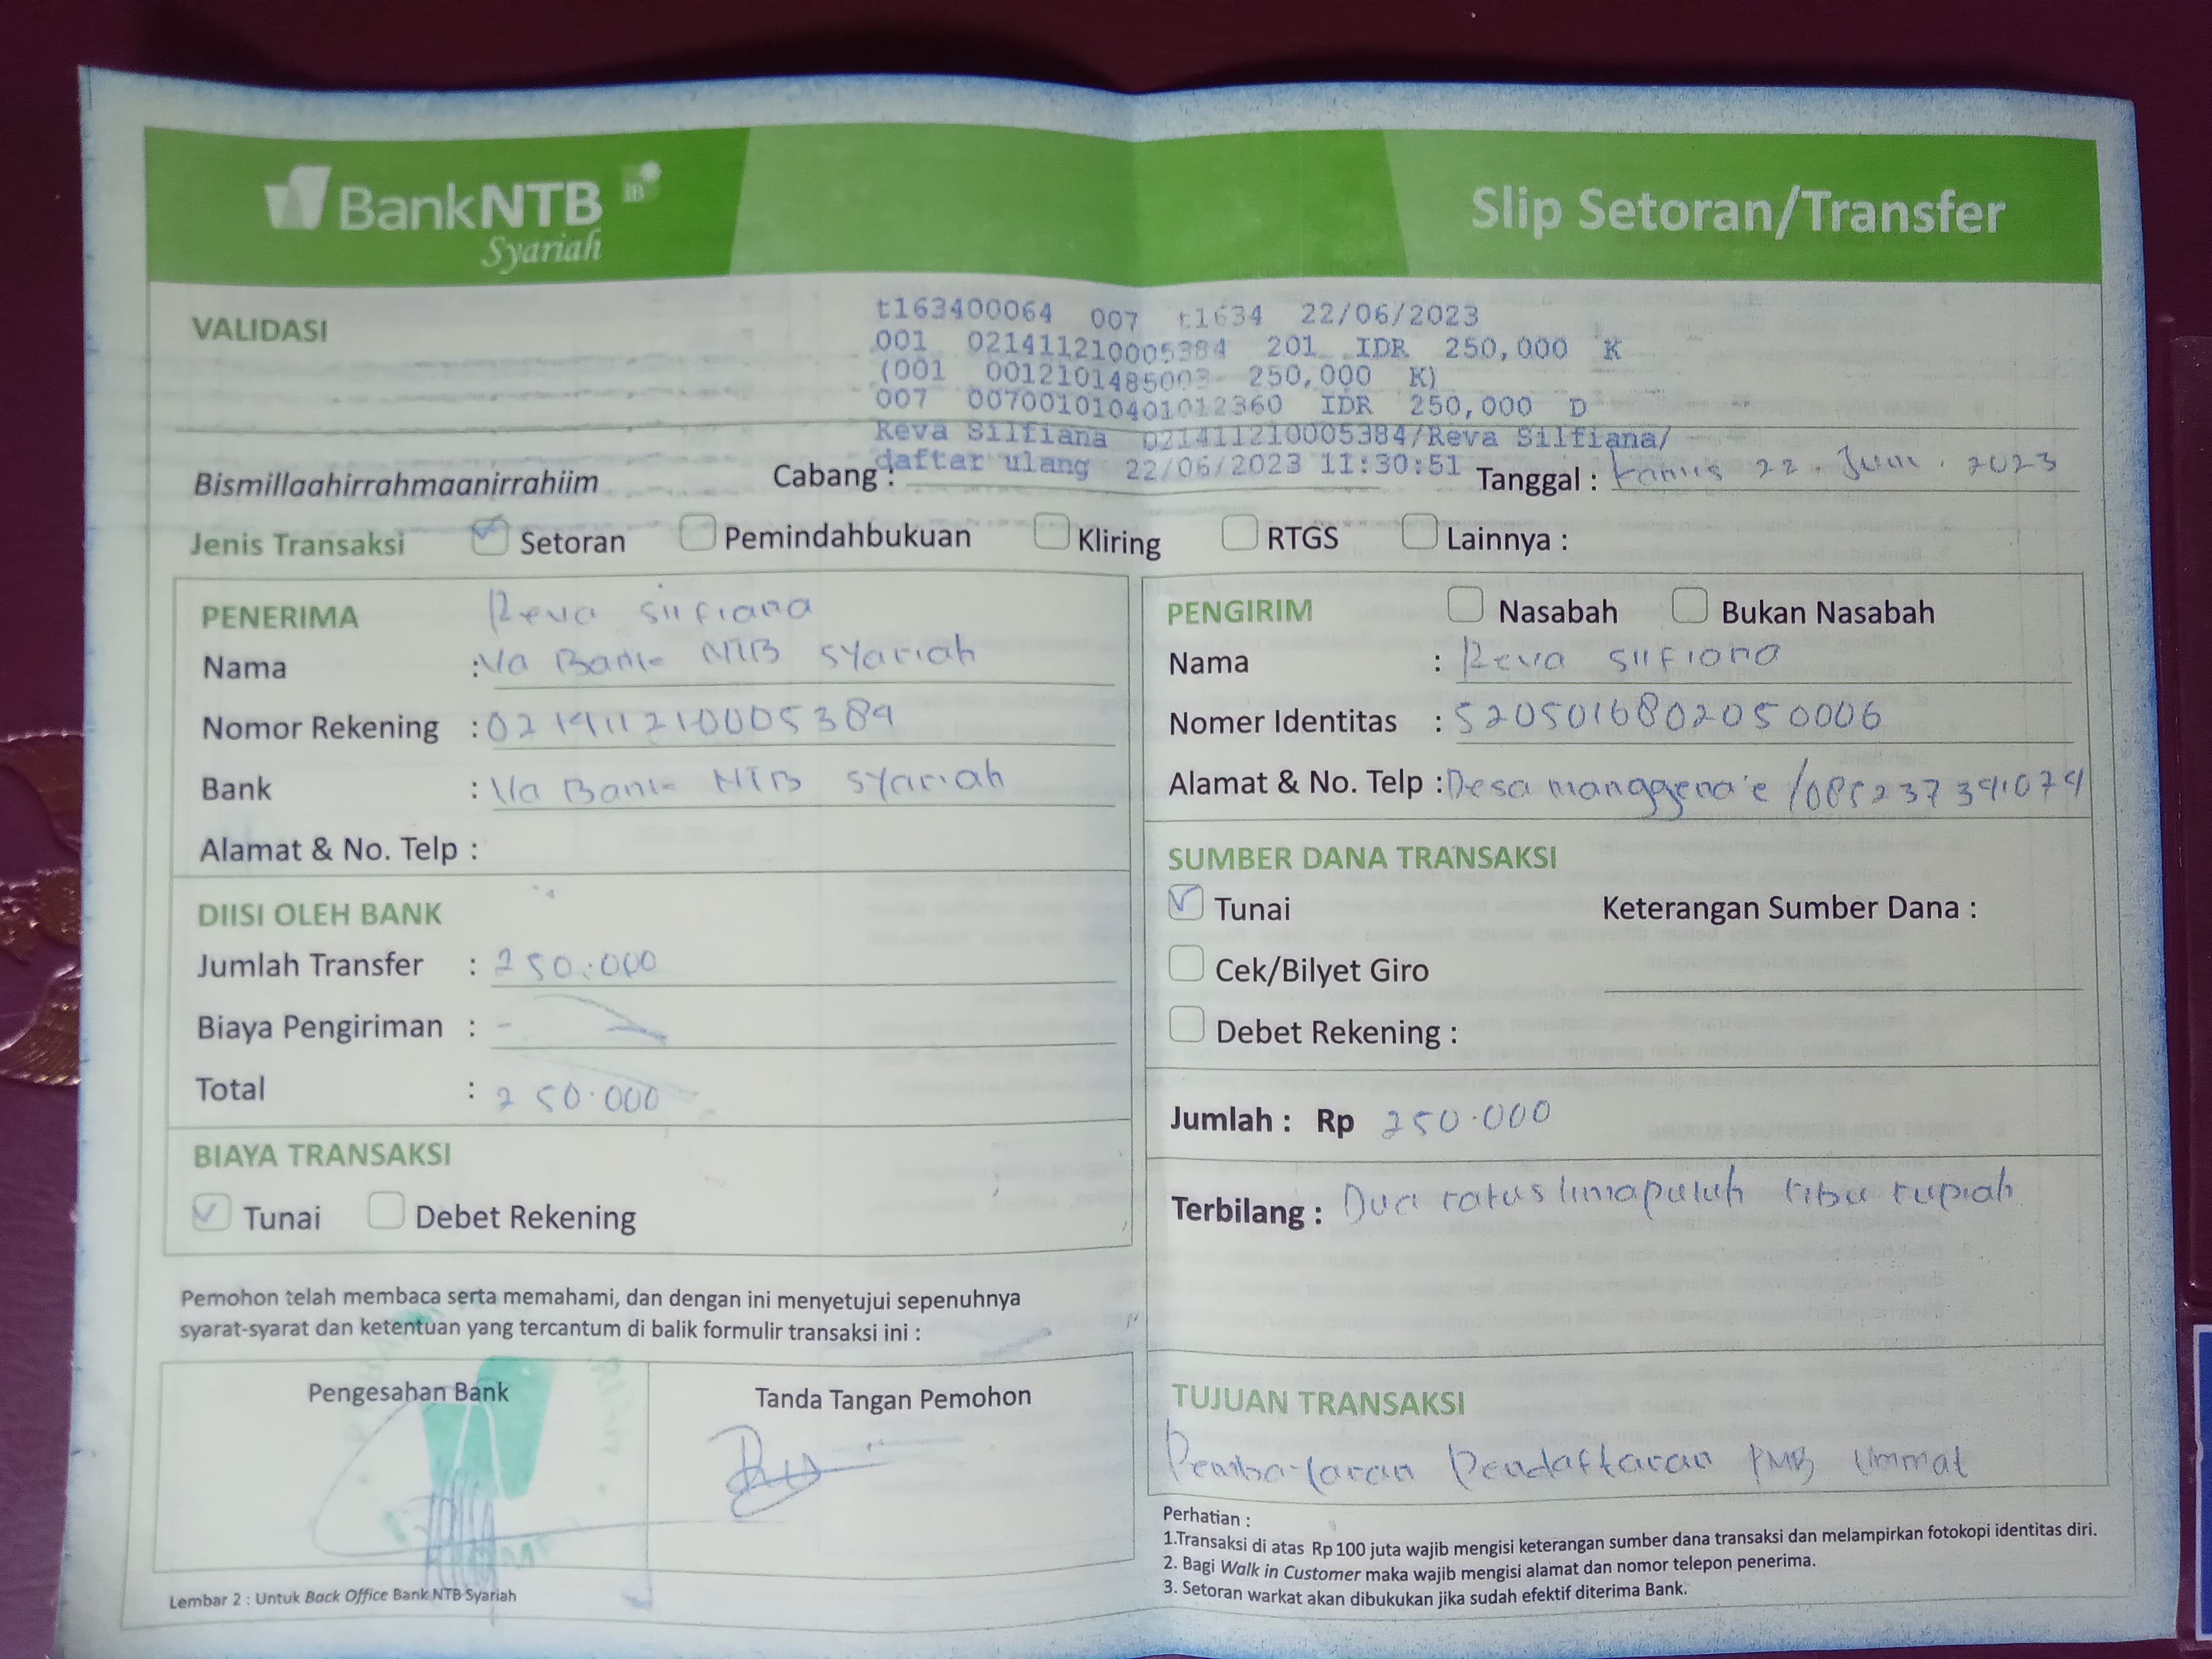 BankNTB iB
Syariah
Slip Setoran/Transfer
VALIDASI
t163400064 007 t1634 22/06/2023
001 021411210005384 201 IDR 250,000 K
(001 0012101485003 250,000 K)
007 007001010401012360 IDR 250,000 D
Reva Silfiana 021411210005384/Reva Silfiana/
daftar ulang 22/06/2023 11:30:51
Bismillaahirrahmaanirrahiim Cabang : Tanggal : Kamis 22. Juni. 2023
Jenis Transaksi Setoran Pemindahbukuan Kliring RTGS Lainnya :
PENERIMA Reva silfiana
Nama : Va Bank NTB syariah
Nomor Rekening : 021411210005384
Bank : Va Bank NTB syariah
Alamat & No. Telp :
DIISI OLEH BANK
Jumlah Transfer : 250.000
Biaya Pengiriman : -
Total : 250.000
BIAYA TRANSAKSI
Tunai Debet Rekening
PENGIRIM Nasabah Bukan Nasabah
Nama : Reva silfiana
Nomer Identitas : 5205016802050006
Alamat & No. Telp : Desa manggena'e /085237391074
SUMBER DANA TRANSAKSI
Tunai Keterangan Sumber Dana :
Cek/Bilyet Giro
Debet Rekening :
Jumlah : Rp 250.000
Terbilang : Dua ratus limapuluh ribu rupiah
Pemohon telah membaca serta memahami, dan dengan ini menyetujui sepenuhnya
syarat-syarat dan ketentuan yang tercantum di balik formulir transaksi ini :
Pengesahan Bank Tanda Tangan Pemohon
TUJUAN TRANSAKSI
Pembayaran Pendaftaran PMB Ummat
Perhatian :
1.Transaksi di atas Rp 100 juta wajib mengisi keterangan sumber dana transaksi dan melampirkan fotokopi identitas diri.
2. Bagi Walk in Customer maka wajib mengisi alamat dan nomor telepon penerima.
3. Setoran warkat akan dibukukan jika sudah efektif diterima Bank.
Lembar 2 : Untuk Back Office Bank NTB Syariah